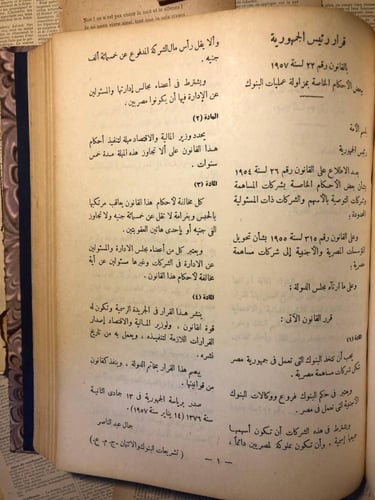 قرار رئيس الجمهورية
بالقانون رقم ٢٢ لسنة ١٩٥٧
بعض الأحكام الخاصة بمزاولة عمليات البنوك
باسم الأمة
رئيس الجمهورية
بعد الاطلاع على القانون رقم ٢٦ لسنة ١٩٥٤
بشأن بعض الأحكام الخاصة بشركات المساهمة
وشركات التوصية بالأسهم والشركات ذات المسئولية
المحدودة ؛
وعلى القانون رقم ٣١٥ لسنة ١٩٥٥ بشأن تحويل
المؤسسات المصرية والأجنبية إلى شركات مساهمة
مصرية ،
وعلى ما ارتآه مجلس الدولة ؛
قرر القانون الآتى :
المادة (١)
يجب أن تتخذ البنوك التى تعمل فى جمهورية مصر
شكل شركات مساهمة مصرية .
ويعتبر فى حكم البنوك فروع ووكالات البنوك
الأجنبية التى تعمل فى مصر .
ويشترط فى هذه الشركات أن تكون أسهمها
جميعا إسمية ، وأن تكون مملوكة لمصريين دائماً ،
وألا يقل رأس مال الشركة المدفوع عن خمسمائة ألف
جنيه .
ويشترط فى أعضاء مجالس إدارتها والمسئولين
عن الإدارة فيها أن يكونوا مصريين .
المادة (٢)
يحدد وزير المالية والاقتصاد مهلة لتنفيذ أحكام
هذا القانون على ألا تجاوز هذه المهلة مدة خمس
سنوات .
المادة (٣)
كل مخالفة لأحكام هذا القانون يعاقب مرتكبها
بالحبس وبغرامة لا تقل عن خمسمائة جنيه ولا تجاوز
ألفى جنيه أو بإحدى هاتين العقوبتين .
ويعتبر كل من أعضاء مجلس الادارة والمسئولين
عن الادارة فى الشركات وغيرها مسئولين عن أية
مخالفة لأحكام هذا القانون .
المادة (٤)
ينشر هذا القرار فى الجريدة الرسمية وتكون له
قوة القانون ، ولوزير المالية والاقتصاد إصدار
القرارات اللازمة لتنفيذه ، ويعمل به من تاريخ
نشره .
يبصم هذا القرار بخاتم الدولة ، وينفذ كقانون
من قوانينها .
صدر برياسة الجمهورية فى ١٣ جمادى الثانية
سنة ١٣٧٦ (١٤ يناير سنة ١٩٥٧)
جمال عبد الناصر
(تشريعات البنوك والائتمان - ج . م . ع .)
— ١ —